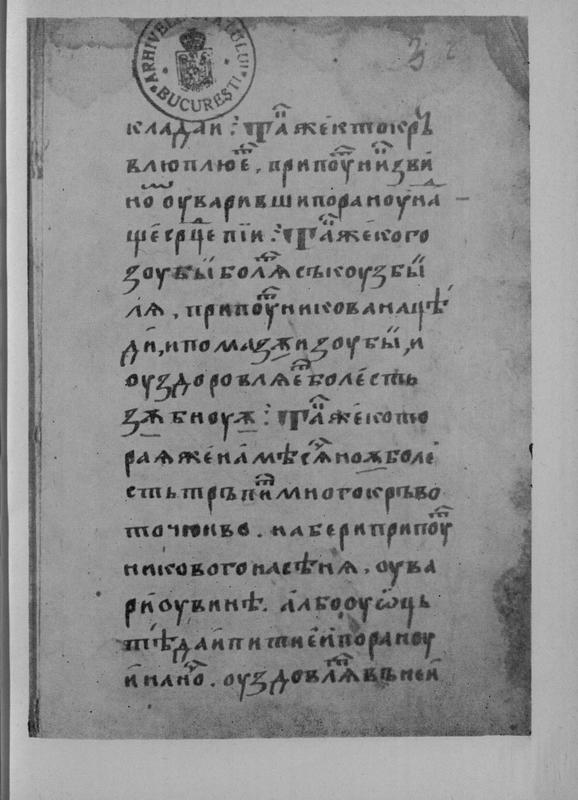 ARHIVELE STATULUI
BUCUREȘTI
3
кладаи : Таже кто кръ
влю плює, припоутни изви
но оуваривши порану на
щесрцепїи : Таже кого
зоубы болѧ съкоузбы
лѧ, припоутникована цѣ
ди, и помазѫи зоубы, и
оуздоровляє болесть
зѫбноуѫ : Таже кото
раѧ жена мѣсѧноѫ боле
сть тръпи много кръво
точюиво. набери припоут
никового насѣнѧ, оува
ри оувинѣ. албо оуѡць
тѣ даи пити еи пораноу
и на но. оуздовлѧ въ неи